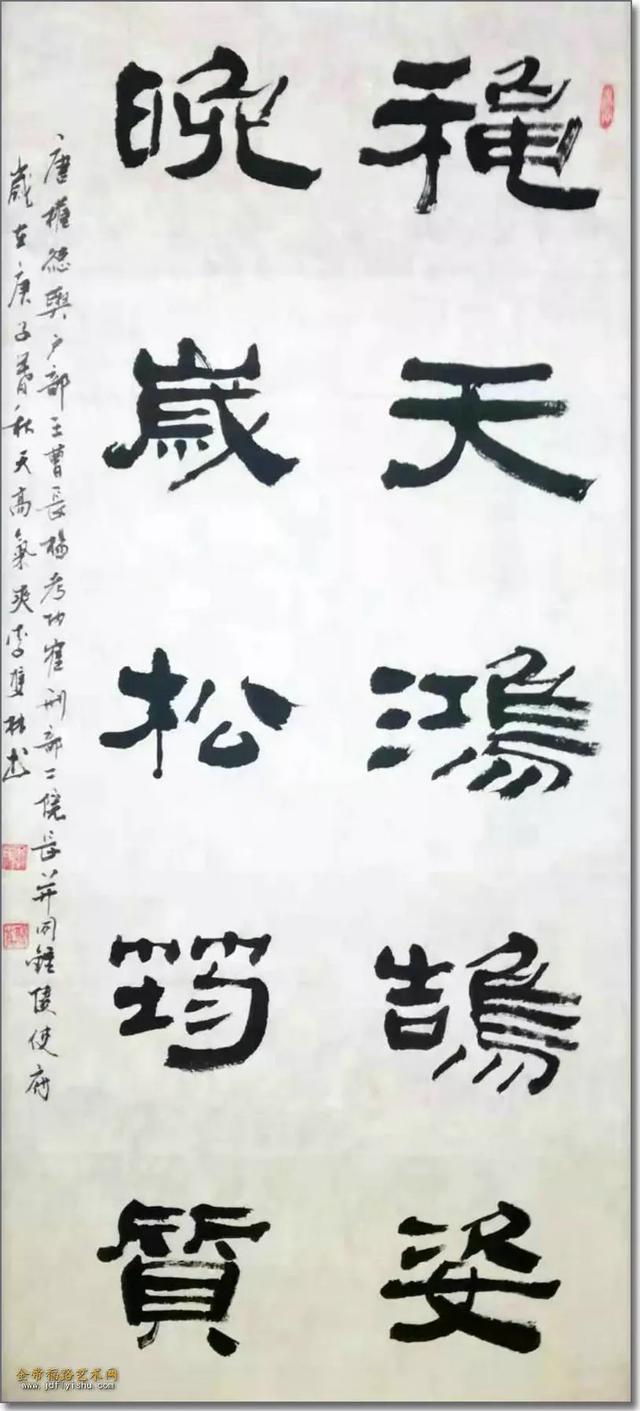 穐天鴻鵠姿
晚歲松筠質
唐權德輿户部王曹長楊考功崔刑部二院長并同鍾陵使府
歲在庚子暮秋天高氣爽李雙林书
金带福路艺术网
www.jdflyishu.com